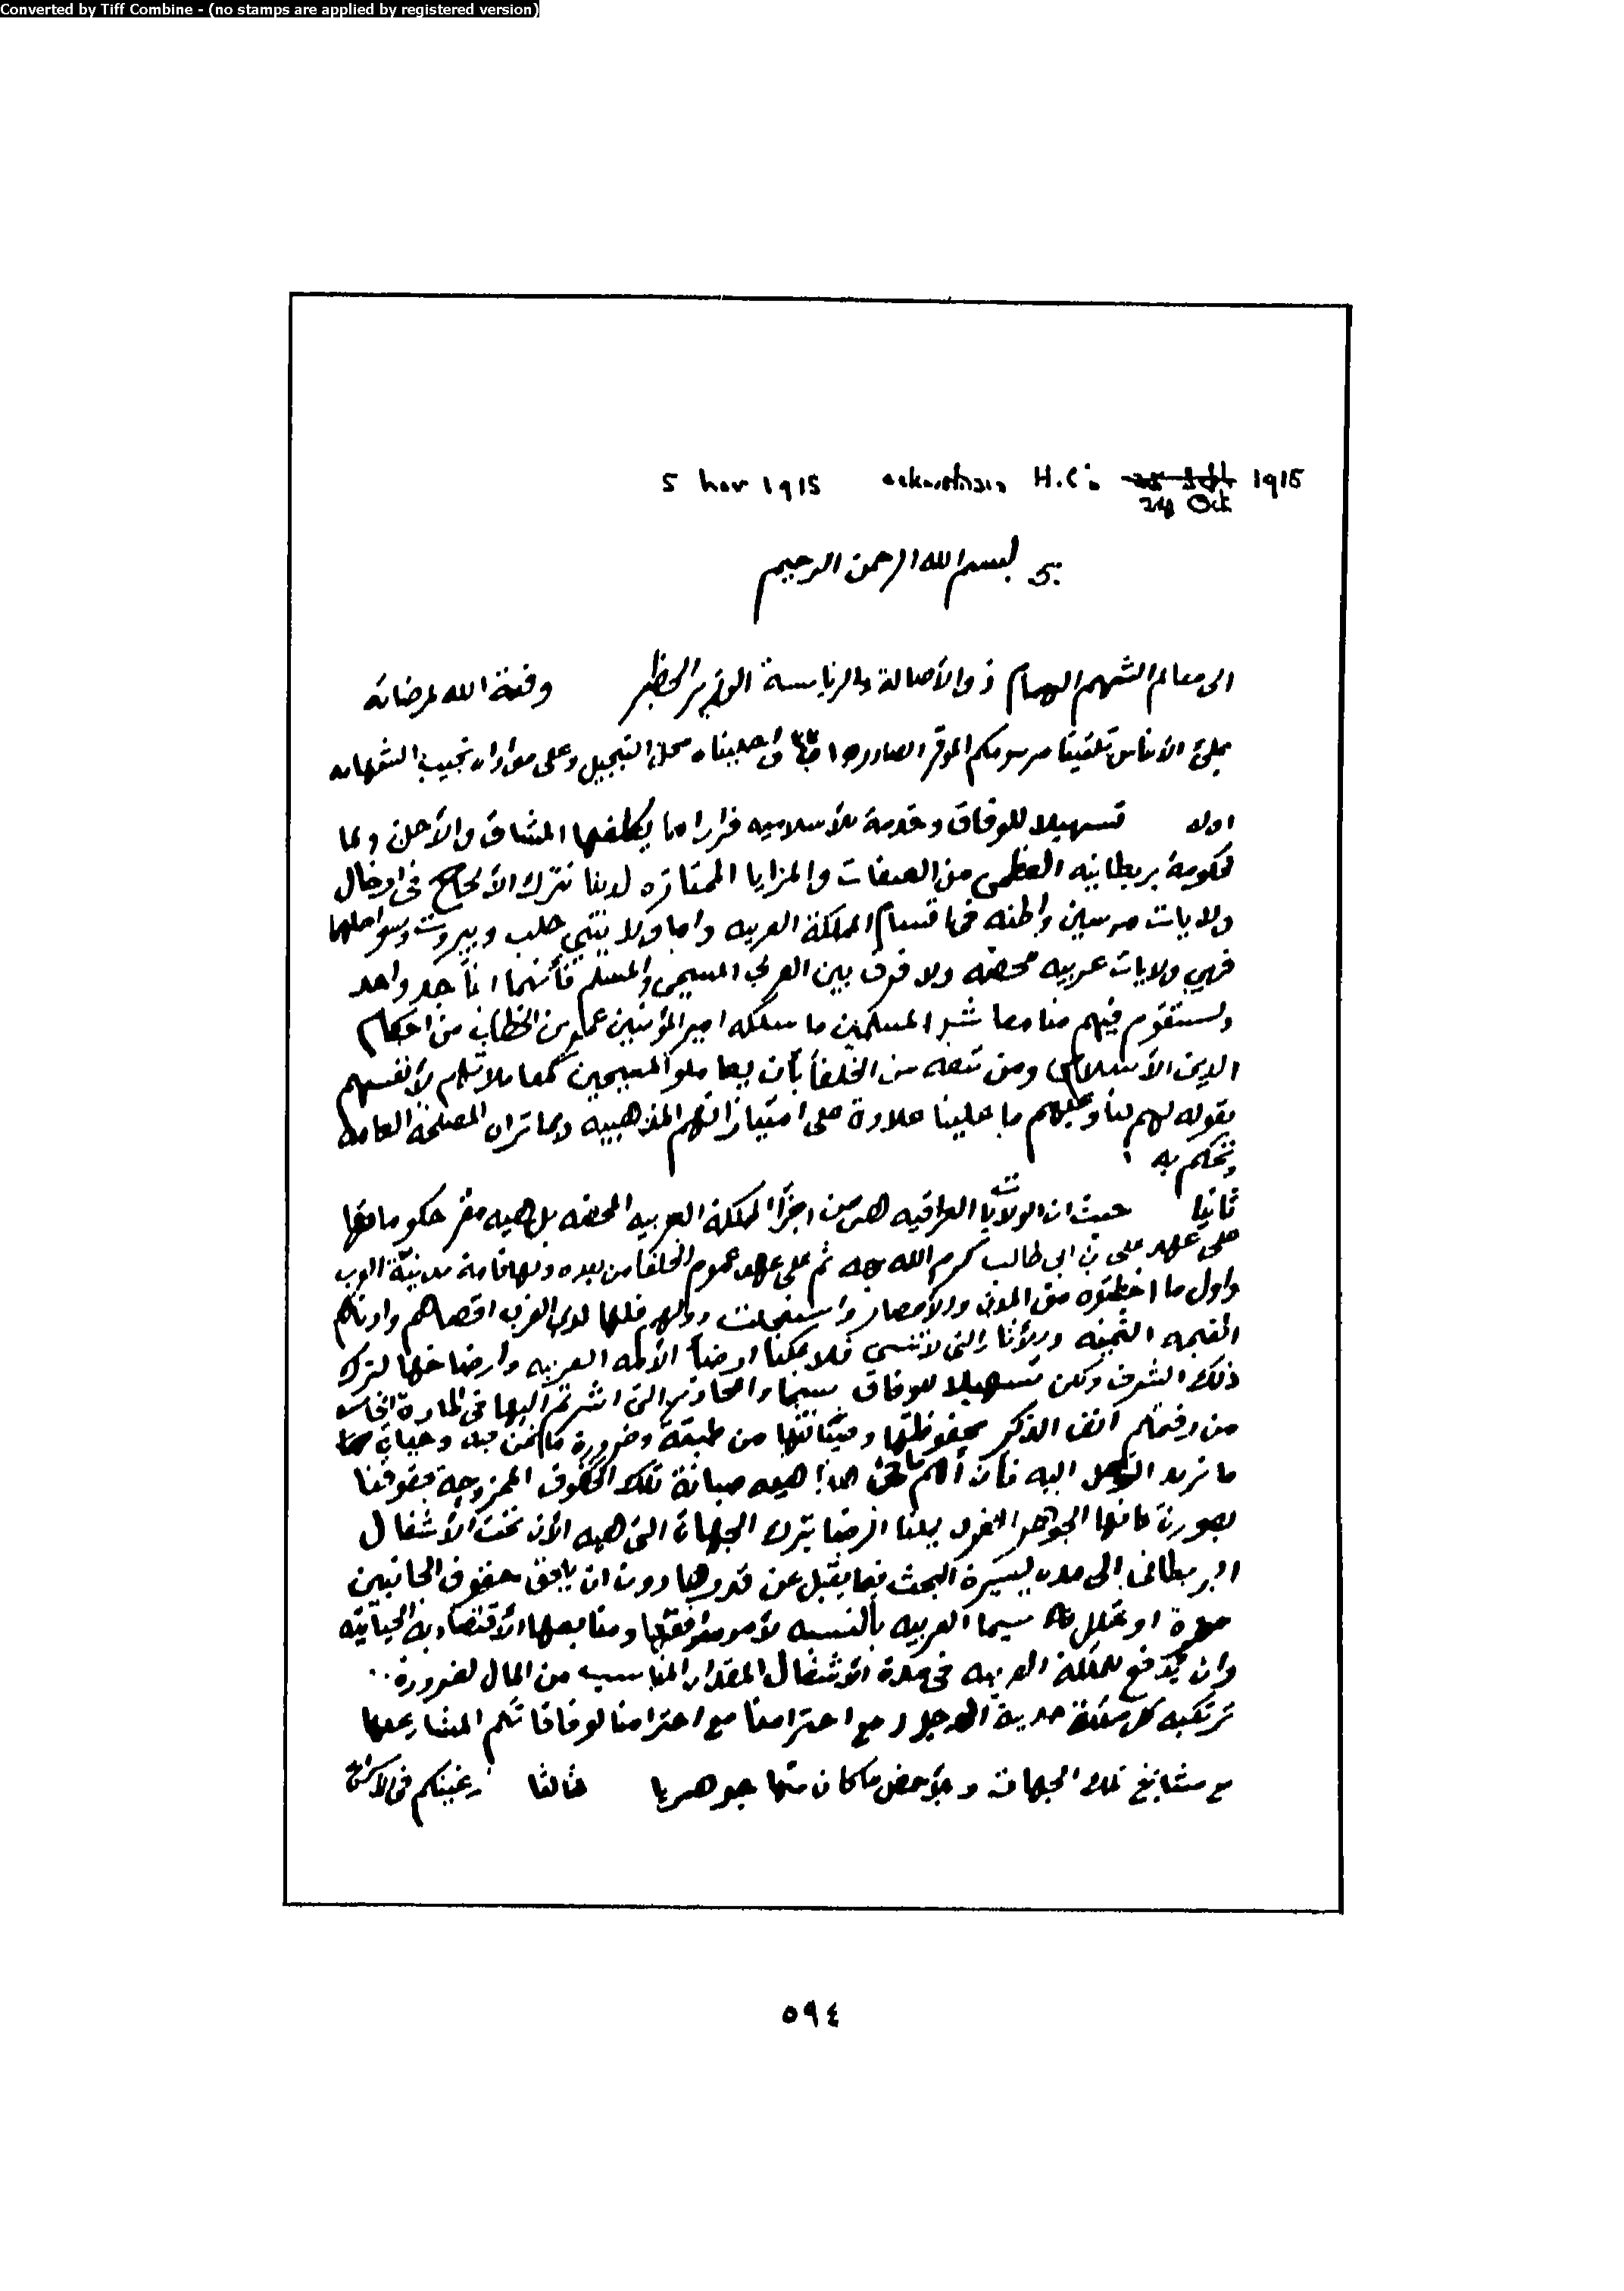 Converted by Tiff Combine - (no stamps are applied by registered version)
5 Nov 1915 H.C's 1915
24 Oct
بسم الله الرحمن الرحيم
الى معالم الشهم الهمام ذو الأصالة والرياسة الوزير الخطير وفقه الله لمرضاته
بملئ الأيناس تلقينا مرسومكم الموقر الصادر واحليناه محل التبجيل وعلى مؤداه نجيب الشهامه
اولا تسهيلا للوفاق وخدمة للأسلاميه فرارا مما يكلفها المشاق والأحن ولما
لحكومة بريطانيه العظمى من الصفات والمزايا الممتازه لدينا نترك الألحاح في ادخال
ولايات مرسين واطنه في اقسام المملكة العربيه واما ولايتي حلب وبيروت وسواحلها
فهي ولايات عربيه محضه ولا فرق بين العربي المسيحي والمسلم فأنهما ابنا جد واحد
ولستقوم فيهم منا معاشر المسلمين ما سلكه امير المؤمنين عمر بن الخطاب من احكام
الدين الأسلامي ومن تبعه من الخلفأ بأن يعاملوا المسيحيين كمعاملاتهم لأنفسهم
بقوله لهم لنا وعليهم ما علينا علاوة على امتيازاتهم المذهبيه وبما تراه المصلحة العامه
وتحكم به
ثانيا حيث ان الولايات العراقيه هي من اجزأ المملكة العربيه المحضه بل هيه مقر حكوماتها
على عهد على بن ابي طالب كرم الله وجهه ثم على عهد عموم الخلفا من بعده وبها قامة مدنيّة العرب
واول ما اختطوه من المدن والأمصار واستفحلت دولهم فلها لدى العرب اقصاهم وادناهم
القيمه الثمينه والتى لا تنسى فلا يمكنا ارضأ الأمه العربيه وارضاخها لترك
ذلك الشرف ولكن تسهيلا للوفاق سيما والمحاذير التى اشرتم اليها في المادة الخامسه
من رقيمكم آنف الذكر محفوظتها وصيانتها من طبيعة وضرورة ما نحن فيه وحيث
ما نريد التوصل اليه فأن أهم ما في هذا هيه صيانة تلك الحقوق الممزوجة بحقوقنا
بصورة كانها الجوهر الفرد يمكنا الرضا بترك الجهات التى هيه الأن تحت الأشغال
البريطاني الى مده يسيرة البحث فيما يقبل عن قدرها دون ان يلحق حقوق الجانبين
مضرة او خلل سيما العربيه بالنسبه لأمور مرافقها ومنابعها الأقتصاديه الحياتيّه
وان يُدفع للمملكة العربيه في مدة الأشغال المقدار المناسب من المال لضرورة..
ترتكبه كل مملكة حديثة الوجود مع احترامنا مع احترامنا لوفاقاتكم المشار اليها
مع مشايخ تلك الجهات وبالأخص ما كان منها جوهريا ثالثا رغبتكم في الاسراع
٥٩٤